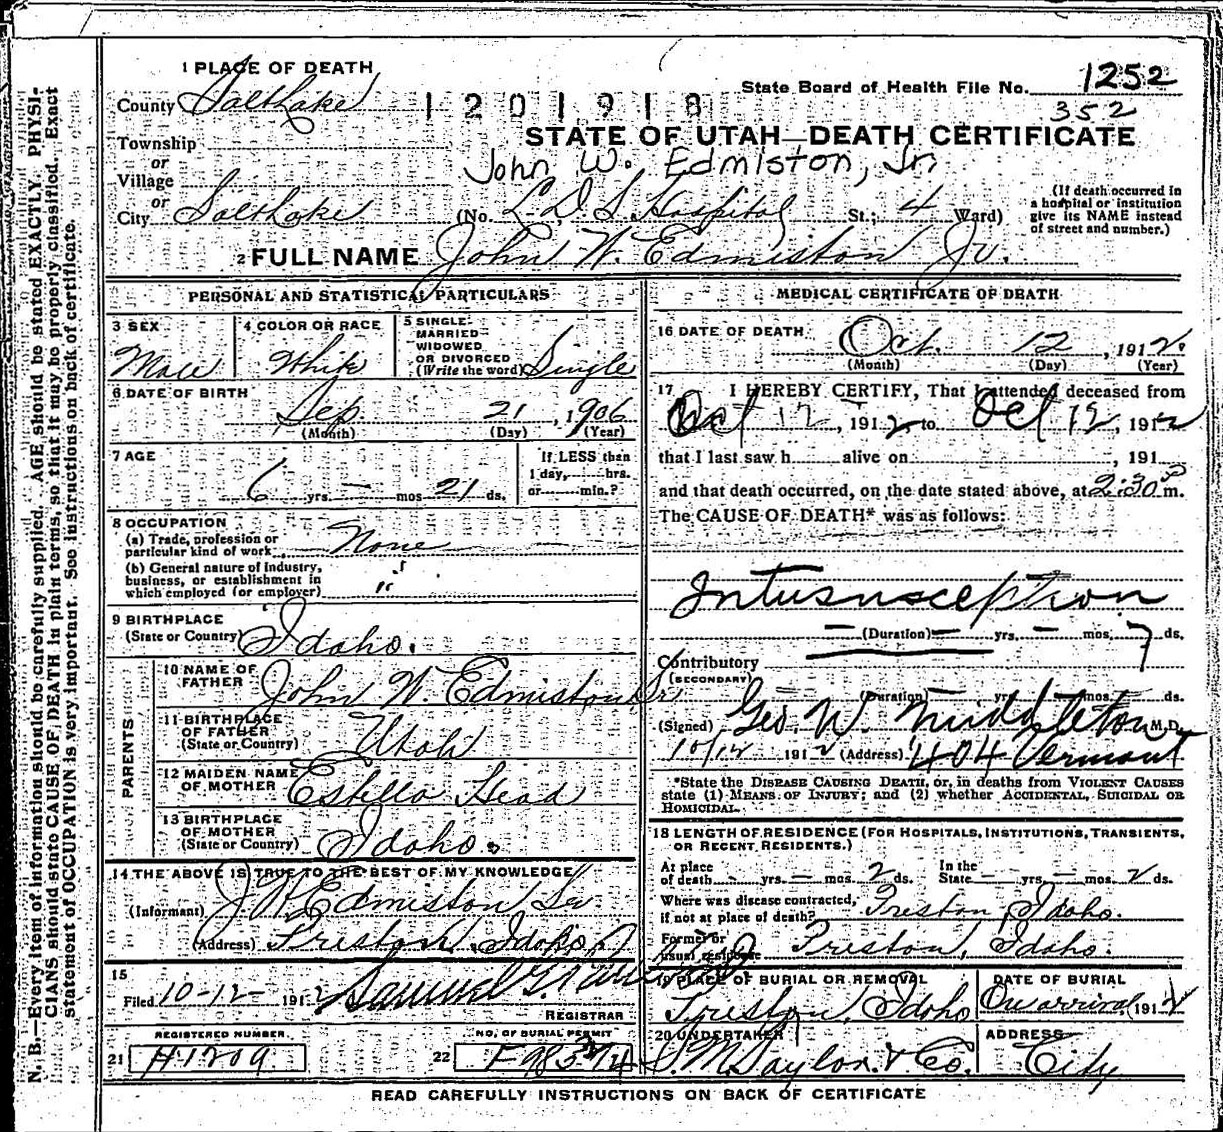 1 PLACE OF DEATH
County Salt Lake
1201918
State Board of Health File No. 1252
352
STATE OF UTAH—DEATH CERTIFICATE
Township
or
Village
or
City Salt Lake
John W. Edmiston, Jr.
(No. L. D. S. Hospital St.; 4 Ward)
(If death occurred in a hospital or institution give its NAME instead of street and number.)
2 FULL NAME John W. Edmiston Jr.
PERSONAL AND STATISTICAL PARTICULARS
3 SEX
Male
4 COLOR OR RACE
White
5 SINGLE
MARRIED
WIDOWED
OR DIVORCED
(Write the word) Single
6 DATE OF BIRTH
Sep 21, 1906
(Month) (Day) (Year)
7 AGE
6 yrs. — mos. 21 ds.
If LESS than
1 day, hrs.
or min.?
8 OCCUPATION
(a) Trade, profession or
particular kind of work None
(b) General nature of Industry,
business, or establishment in
which employed (or employer) "
9 BIRTHPLACE
(State or Country) Idaho.
PARENTS
10 NAME OF
FATHER John W. Edmiston Sr
11 BIRTHPLACE
OF FATHER
(State or Country) Utah
12 MAIDEN NAME
OF MOTHER Estella Head
13 BIRTHPLACE
OF MOTHER
(State or Country) Idaho.
14 THE ABOVE IS TRUE TO THE BEST OF MY KNOWLEDGE
(Informant) J W Edmiston Sr
(Address) Preston, Idaho
15
Filed 10-12- 1912 Samuel G.
REGISTRAR
REGISTERED NUMBER.
21 H1209
NO. OF BURIAL PERMIT
22
MEDICAL CERTIFICATE OF DEATH
16 DATE OF DEATH
Oct. 12, 1912.
(Month) (Day) (Year)
17 I HEREBY CERTIFY, That I attended deceased from
Oct 12, 1912 to Oct 12, 1912
that I last saw h alive on , 191
and that death occurred, on the date stated above, at 2:30 P m.
The CAUSE OF DEATH* was as follows:
Intussusception
— (Duration) — yrs. — mos. 7 ds.
Contributory
(SECONDARY)
(Duration) — yrs. — mos. ds.
(Signed) Geo. W. Middleton M.D.
10/12 1912 (Address) 404 Vermont
*State the DISEASE CAUSING DEATH, or, in deaths from VIOLENT CAUSES
state (1) MEANS OF INJURY; and (2) whether ACCIDENTAL, SUICIDAL OR
HOMICIDAL.
18 LENGTH OF RESIDENCE (FOR HOSPITALS, INSTITUTIONS, TRANSIENTS,
OR RECENT RESIDENTS.)
At place
of death - yrs. — mos. 2 ds.
In the
State — yrs. — mos. 2 ds.
Where was disease contracted,
if not at place of death? Preston, Idaho.
Former or
usual residence Preston, Idaho.
19 PLACE OF BURIAL OR REMOVAL
Preston, Idaho
DATE OF BURIAL
On arrival, 1912
20 UNDERTAKER
S. M. Taylor & Co.
ADDRESS
City
READ CAREFULLY INSTRUCTIONS ON BACK OF CERTIFICATE
N. B.—Every item of information should be carefully supplied. AGE should be stated EXACTLY. PHYSI-
CIANS should state CAUSE OF DEATH in plain terms, so that it may be properly classified. Exact
statement of OCCUPATION is very important. See instructions on back of certificate.